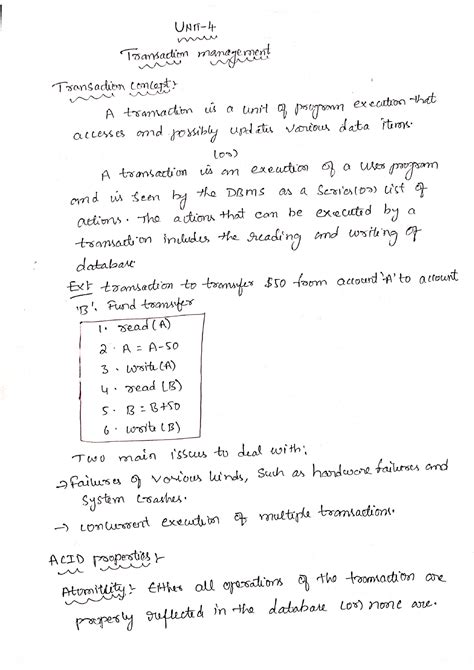 UNIT-4
Transaction management
Transaction concept:-
A transaction is a unit of program execution that
accesses and possibly updates various data items.
(or)
A transaction is an execution of a user program
and is seen by the DBMS as a series(or) list of
actions. The actions that can be executed by a
transaction includes the reading and writing of
database
Ex:- transaction to transfer $50 from account 'A' to account
'B'. Fund transfer
1. read(A)
2. A = A-50
3. write(A)
4. read(B)
5. B = B+50
6. write(B)
Two main issues to deal with:
→ failures of various kinds, such as hardware failures and
system crashes.
→ concurrent execution of multiple transactions.
ACID properties:-
Atomicity:- Either all operations of the transaction are
properly reflected in the database (or) none are.